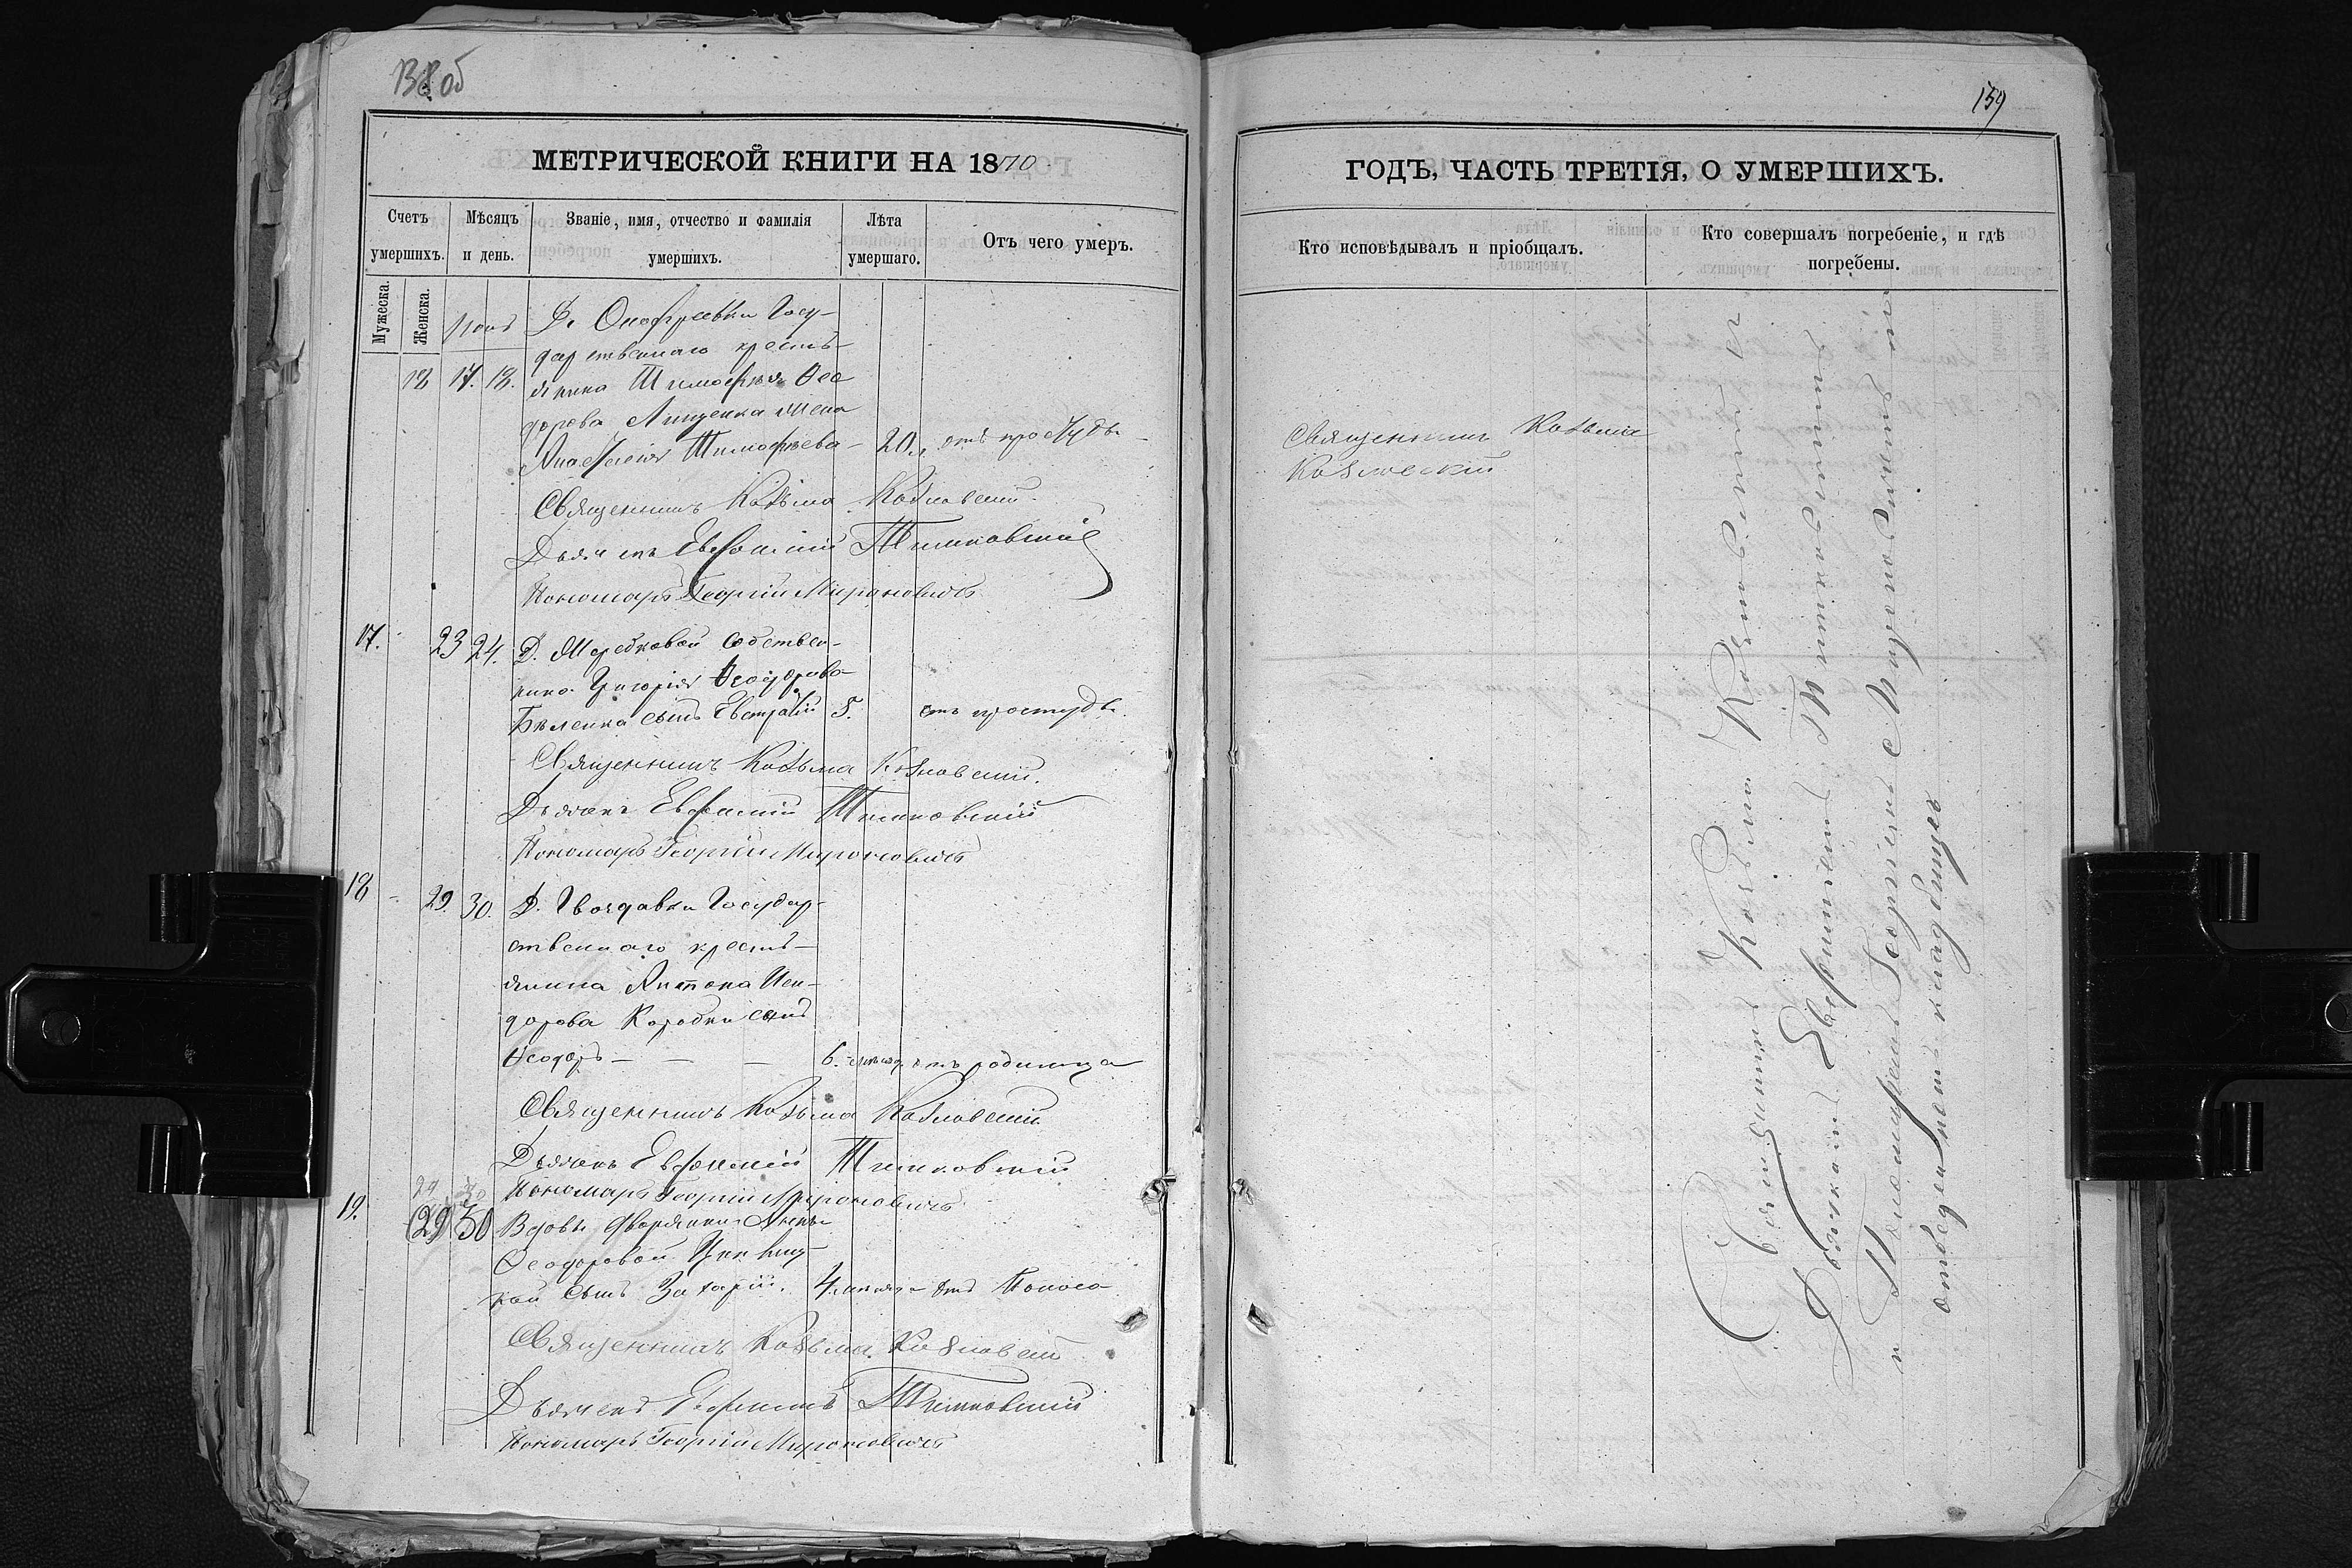 138 об
МЕТРИЧЕСКОЙ КНИГИ НА 1870
Счетъ умершихъ.
Мѣсяцъ и день.
Званіе, имя, отчество и фамилія умершихъ.
Лѣта умершаго.
Отъ чего умеръ.
Мужеска.
Женска.
Д. Онофреевки Госу-
дарственнаго кресть-
18 17. 18. янина Тимофея Ѳео
дорова Лищенка жена
Анастасія Тимофѣева 20 отъ простуды
Священникъ Козьма Козловскій
Дьячекъ Евфимій Тимковскій
Пономарь Георгій Мироновичъ
17. 23 24. Д. Жеребковой Собствен-
ника Григорія Ѳеодорова
Бѣленка сынъ Евстафій 5. отъ простуды.
Священникъ Козьма Козловскій.
Дьячекъ Евфимій Тимковскій
Пономарь Георгій Мироновичъ
18 29. 30. Д. Гвоздавки Государ-
ственнаго кресть-
янина Антона Иси-
дорова Коробки сынъ
Ѳеодоръ — — — 6. отъ родимца
Священникъ Козьма Козловскій
Дьячекъ Евфимій Тимковскій
29 30
Пономарь Георгій Мироновичъ
19. 29 30 Вдовы дворянки Анны
Ѳеодоровой
кой сынъ Захарій. 4 мѣсяца отъ поноса
Священникъ Козьма Козловскій
Дьячекъ Евфимій Тимковскій
Пономарь Георгій Мироновичъ
139
ГОДЪ, ЧАСТЬ ТРЕТІЯ, О УМЕРШИХЪ.
Кто исповѣдывалъ и пріобщалъ.
Кто совершалъ погребеніе, и гдѣ погребены.
Священникъ Козьма
Козловскій
Священникъ Козьма Козловскій съ
Дьячкомъ Евфиміемъ Тимковскимъ
и Пономаремъ Георгіемъ Мироновичемъ на
отведенномъ кладбищѣ